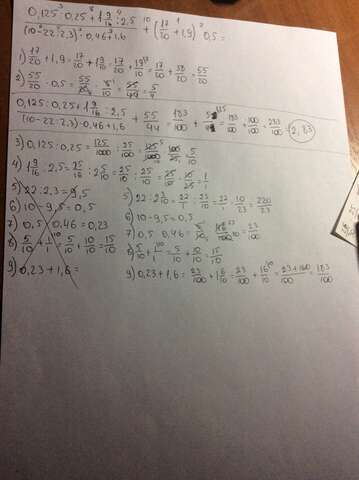 0,125 : 0,25 + 1 9/16 : 2,5 / (10 - 22 : 2,3) · 0,46 + 1,6 + (17/20 + 1,9) · 0,5 =
1) 17/20 + 1,9 = 17/20 + 19/10 = 17/20 + 38/20 = 55/20
2) 55/20 · 0,5 = 55/20 ·
0,125 : 0,25 + 1 9/16 : 2,5 / (10 - 22 : 2,3) · 0,46 + 1,6 + 55/44 = 183/100 + = 183/100 + 100/100 = 283/100 = 2,83
3) 0,125 : 0,25 = 125/1000 : 25/100 = 125/1000 · 100/25 = 5/10
4) 1 9/16 : 2,5 = 25/16 : 25/10 = 25/10 : 25/10 = 25/10 · 10/25 = 1/1
5) 22 : 2,3 = 9,5
6) 10 - 9,5 = 0,5
7) 0,5 · 0,46 = 0,23
8) 5/10 + 1/1 = 5/10 + 10/10 = 15/10
9) 0,23 + 1,6 =
5) 22 : 2 3/10 = 22/1 : 23/10 = 22/1 · 10/23 = 220/23
6) 10 - 9,5 = 0,5
7) 0,5 · 0,46 = = 23/100
8) 5/10 + 1/1 = 5/10 + 10/10 = 15/10
9) 0,23 + 1,6 = 23/100 + 16/10 = 23/100 + 16/10 = 23 + 160/100 = 183/100